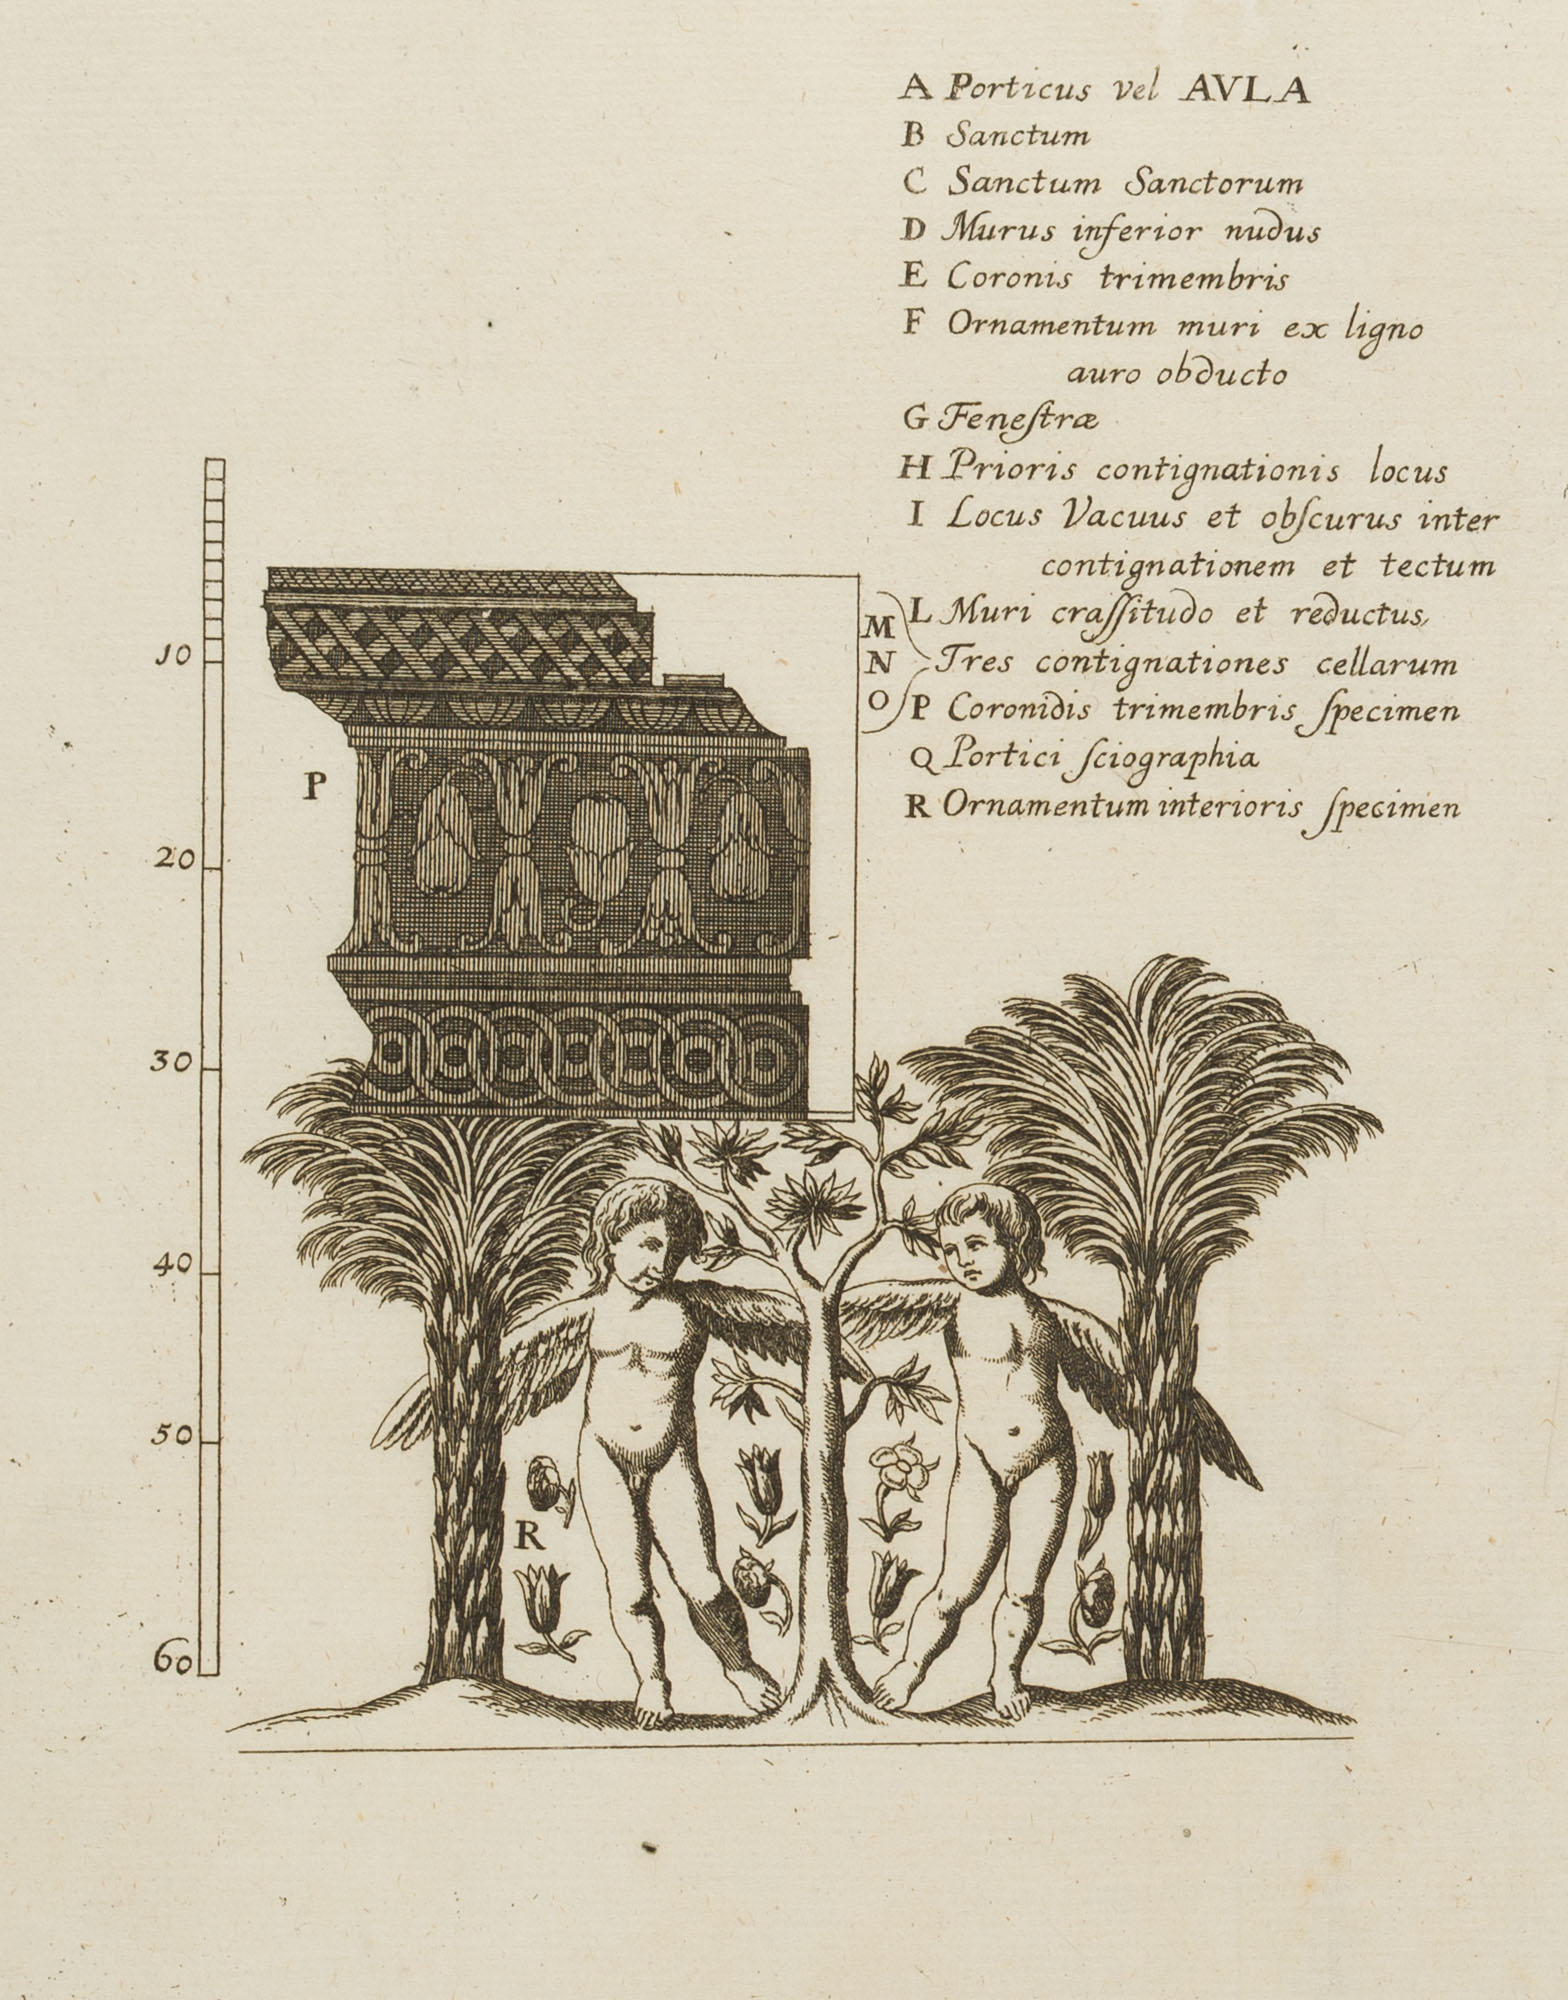 A Porticus vel AVLA
B Sanctum
C Sanctum Sanctorum
D Murus inferior nudus
E Coronis trimembris
F Ornamentum muri ex ligno
auro obducto
G Feneſtræ
H Prioris contignationis locus
I Locus Vacuus et obſcurus inter
contignationem et tectum
L Muri craſſitudo et reductus,
M
N Tres contignationes cellarum
O
P Coronidis trimembris ſpecimen
Q Portici ſciographia
R Ornamentum interioris ſpecimen
10
20
30
40
50
60
P
R